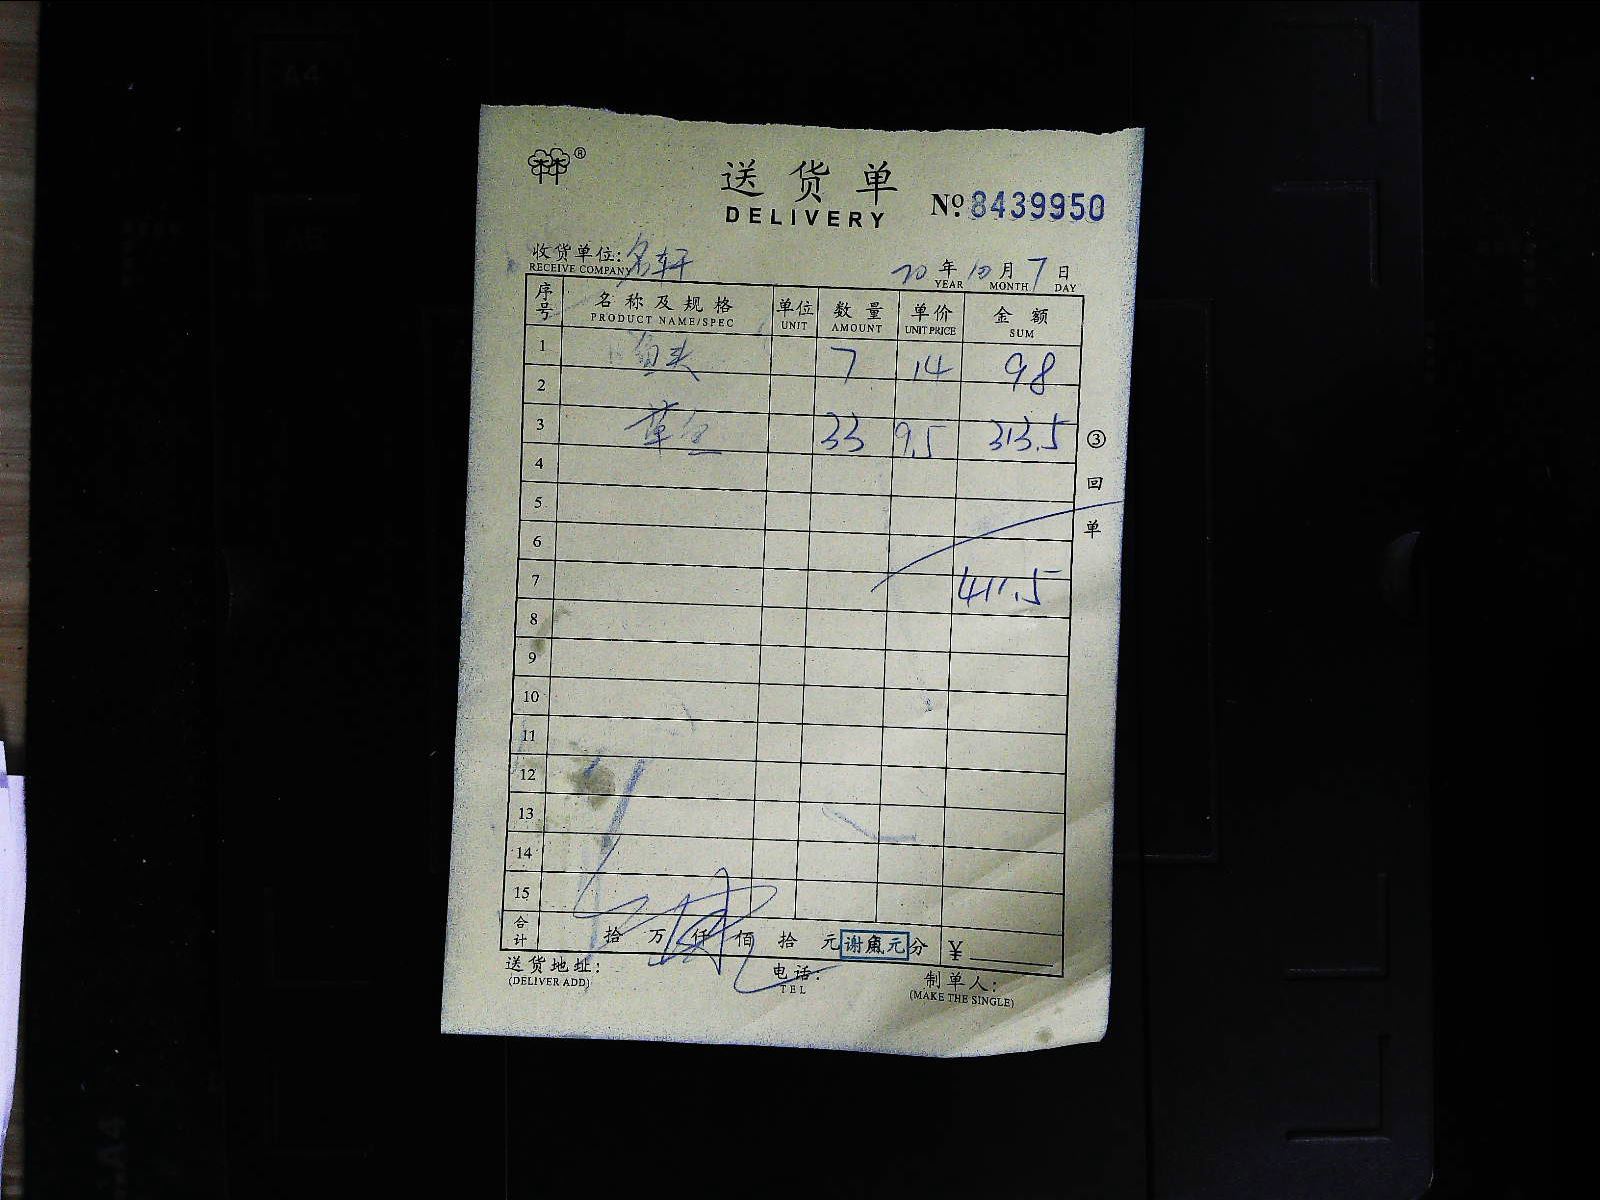 ®
送货单
DELIVERY
№ 8439950
收货单位: 名轩
RECEIVE COMPANY
20 年 10 月 7 日
YEAR MONTH DAY
序号 名称及规格 单位 数量 单价 金额
PRODUCT NAME/SPEC UNIT AMOUNT UNIT PRICE SUM
1 鱼头 7 14 98
2
3 草鱼 33 9.5 313.5
4
5
6
7 411.5
8
9
10
11
12
13
14
15
合计 拾 万 仟 佰 拾 元 谢鱼元 分 ¥
送货地址: 电话: 制单人:
(DELIVER ADD) TEL (MAKE THE SINGLE)
③回单